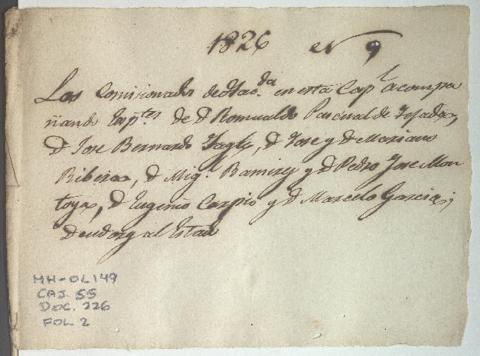 1826 N 9
Los Comisionados de Hasda en esta Capl acompa
ñando Exptes de Dn Romualdo Pascual de Tejada,
Dn Jose Bernardo Tagle, Dn Jose y Dn Mariano
Ribera, Dn Migl Ramirez y Dn Pedro Jose Mon
toya, Dn Eugenio Carpio y Dn Marcelo Garcia;
Deudores al Estado
MH-OL 149
CAJ. 55
DOC. 226
FOL. 2